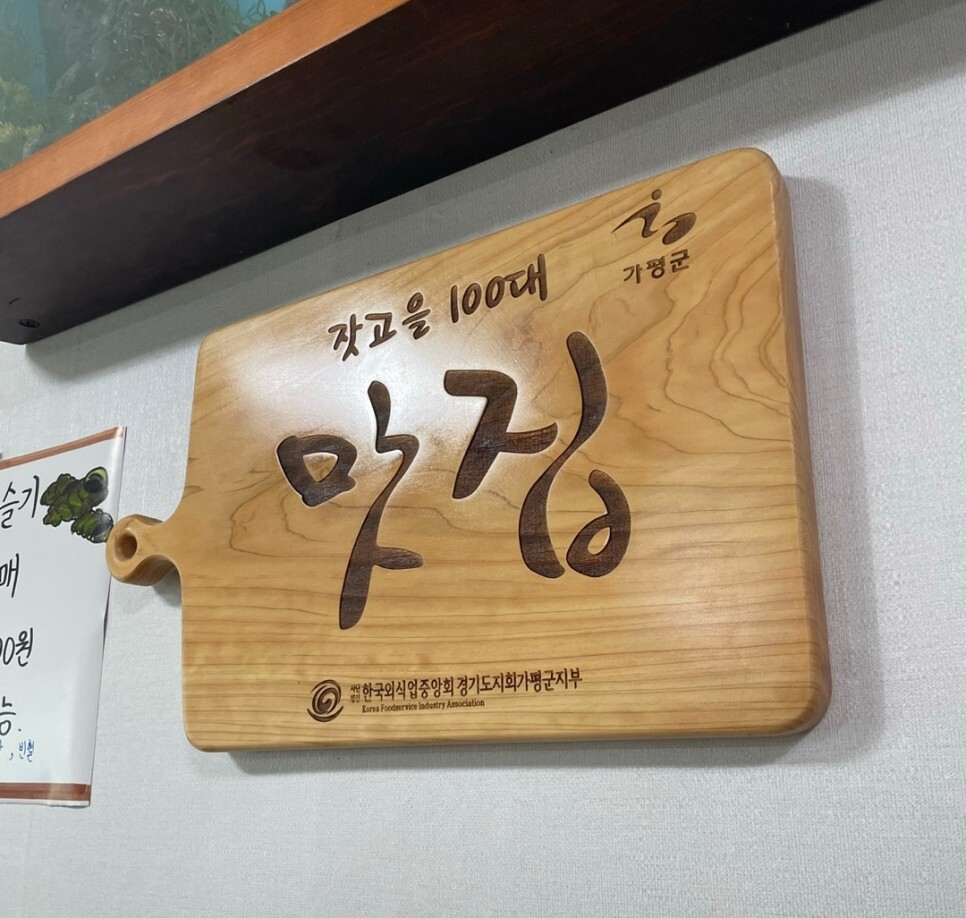 가평군
잣고을 100대
맛집
사단법인 한국외식업중앙회 경기도지회가평군지부
Korea Foodservice Industry Association
슬기
매
00원
능.
, 빈혈